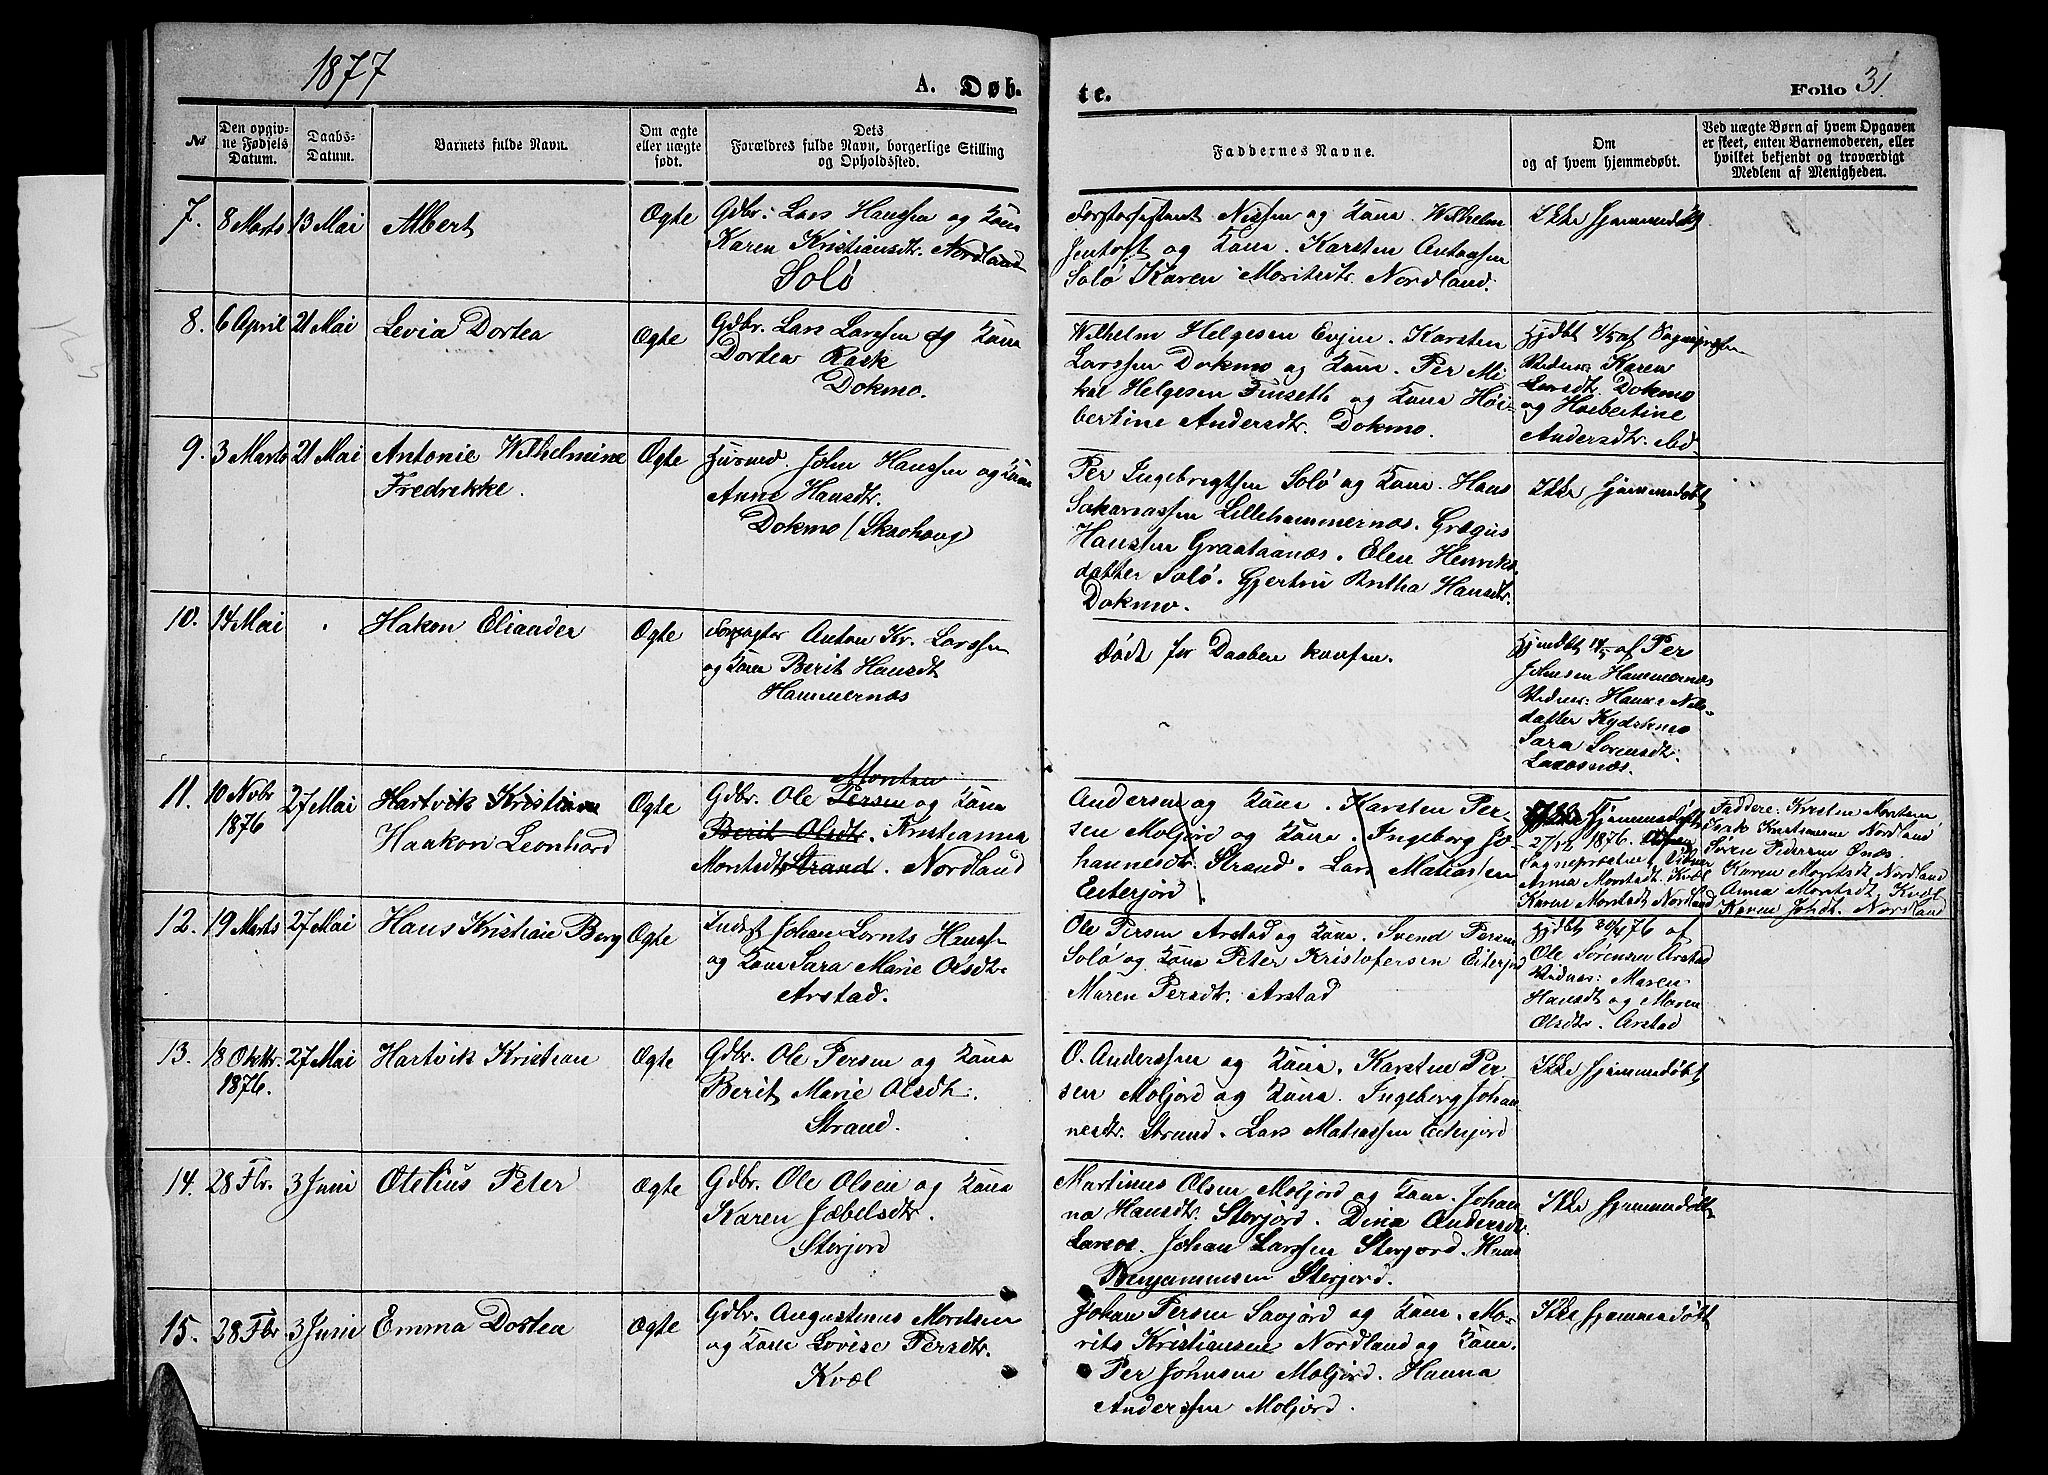 1877
A. Døb-
te.
Folio 31.
№
Den opgiv-
ne Fødsels
Datum.
Daabs-
Datum.
Barnets fulde Navn.
Om ægte
eller uægte
født.
Dets
Forældres fulde Navn, borgerlige Stilling
og Opholdssted.
Faddernes Navne.
Om
og af hvem hjemmedøbt.
Ved uægte Børn af hvem Opgaven
er skeet, enten Barnemoderen, eller
hvilket bekjendt og troværdigt
Medlem af Menigheden.
7.
8 Marts
13 Mai
Albert
Ægte
Gdbr. Lars Hanssen og Kone
Karen Kristiansdtr. Nordland
Solø
Forstassistent Nissen og Kone. Wilhelm
Jentoft og Kone. Karsten Antonsen
Solø Karen Moritsdtr. Nordland.
Ikke hjemmedøbt
8.
6 April
21 Mai
Levia Dortea
Ægte
Gdbr. Lars Larssen og Kone
Dortea Rask
Dokmo.
Wilhelm Helgesen Evjen. Karsten
Larssen Dokmo og Kone. Per Mi-
kal Helgesen Finseth og Kone Høi-
bertine Andersdtr. Dokmo.
Hjdbt 4/5 af Sognepresten
Vidner: Karen
Larsdt. Dokmo
og Høibertine
Andersdtr. ibd.
9.
3 Marts
21 Mai
Antonie Wilhelmine
Fredrekke.
Ægte
Husmd. John Hanssen og Kone
Anne Hansdtr.
Dokmo (Skaohaug)
Per Ingebrigtsen Solø og Kone. Hans
Sakariassen Lillehammernæs. Grægus
Hanssen Graataanæs. Elen Henriks-
datter Solø. Gjertru Britha Hansdtr.
Dokmo.
Ikke hjemmedøbt
10.
14 Mai
Hakon Eliander
Ægte
Forpagter Anton Kr. Larssen
og Kone Berit Hansdt
Hammernæs
Død før Daaben kunsen.
Hjmdbt 14/5 af Per
Johnsen Hammernæs
Vidner: Hanna Nils-
datter Kydskmo
Sara Sørensdtr.
Laxosnæs.
11.
10 Novbr
1876
27 Mai
Hartvik Kristian
Haakon Leonhard
Ægte
Morten
Gdbr. Ole Persen og Kone
Berit Olsdtr. Kristianna
Moritsdt Strand. Nordland
Andersen og Kone. Karsten Per-
sen Moljord og Kone. Ingeborg Jo-
hannesdtr. Strand. Lars Matiassen
Eiterjord
Hjemmedøbt
27/12 1876.
Sognepræsten. Vidner
Anna Moritsdt. Kvæl
Karen Moritsdt. Nordland
Faddere: Kristen Mortsen
Isak Kristiansen Nordland
Søren Pedersen Onæs.
Karen Moritsdt. Nordland
Anna Moritsdt. Kvæl
Karen Johdt. Nordland
12.
19 Marts
27 Mai
Hans Kristian Berg
Ægte
Inderst Johan Lornts Hanss-
og Kone Sara Marie Olsdtr.
Arstad.
Ole Persen Arstad og Kone. Svend Persen
Solø og Kone Peter Kristofersen Eiterjord
Maren Persdtr. Arstad
Hjdbt 30/4 76 af
Ole Sørensen Arstad
Vidnes: Maren
Hansdt og Maren
Olsdtr. Arstad
13.
18 Oktbr.
1876.
27 Mai
Hartvik Kristian
Ægte
Gdbr. Ole Persen og Kone
Berit Marie Olsdtr.
Strand.
O. Anderssen og Kone. Karsten Per-
sen Moljord og Kone. Ingeborg Johan-
nesdtr. Strand. Lars Matiassen Eiterjord
Ikke hjemmedøbt
14.
28 Fbr.
3 Juni
Otelius Peter
Ægte
Gdbr. Ole Olsen og Kone
Karen Jæbelsdtr.
Storjord
Martinus Olsen Moljord og Kone. Johan-
na Hansdtr. Storjord. Dina Andersdt.
Larsos. Johan Larssen Storjord. Hans
Benjaminsen Storjord.
Ikke hjemmedøbt
15.
28 Fbr
3 Juni
Emma Dortea
Ægte
Gdbr. Augustinus Moritsen
og Kone Lovise Persdtr.
Kvæl
Johan Persen Savjord og Kone. Mo-
rits Kristiansen Nordland og Kone.
Per Johnsen Moljord. Hanna
Anderssen Moljord.
Ikke hjemmedøbt